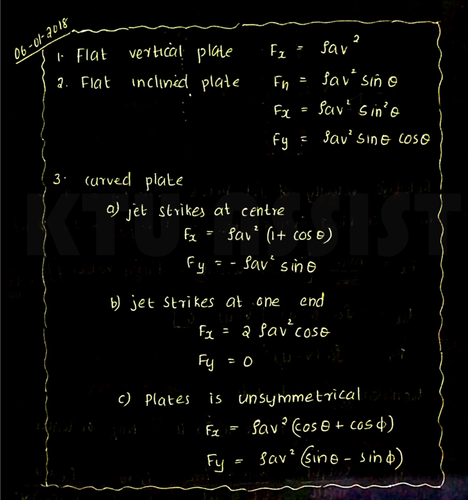 06-01-2018
1. Flat vertical plate Fx = ρav²
2. Flat inclined plate Fn = ρav² sinθ
Fx = ρav² sin²θ
Fy = ρav² sinθ cosθ
3. curved plate
a) jet strikes at centre
Fx = ρav² (1+ cosθ)
Fy = - ρav² sinθ
b) jet strikes at one end
Fx = 2 ρav² cosθ
Fy = 0
c) Plates is unsymmetrical
Fx = ρav² (cosθ + cosϕ)
Fy = ρav² (sinθ - sinϕ)
KTU ASSIST